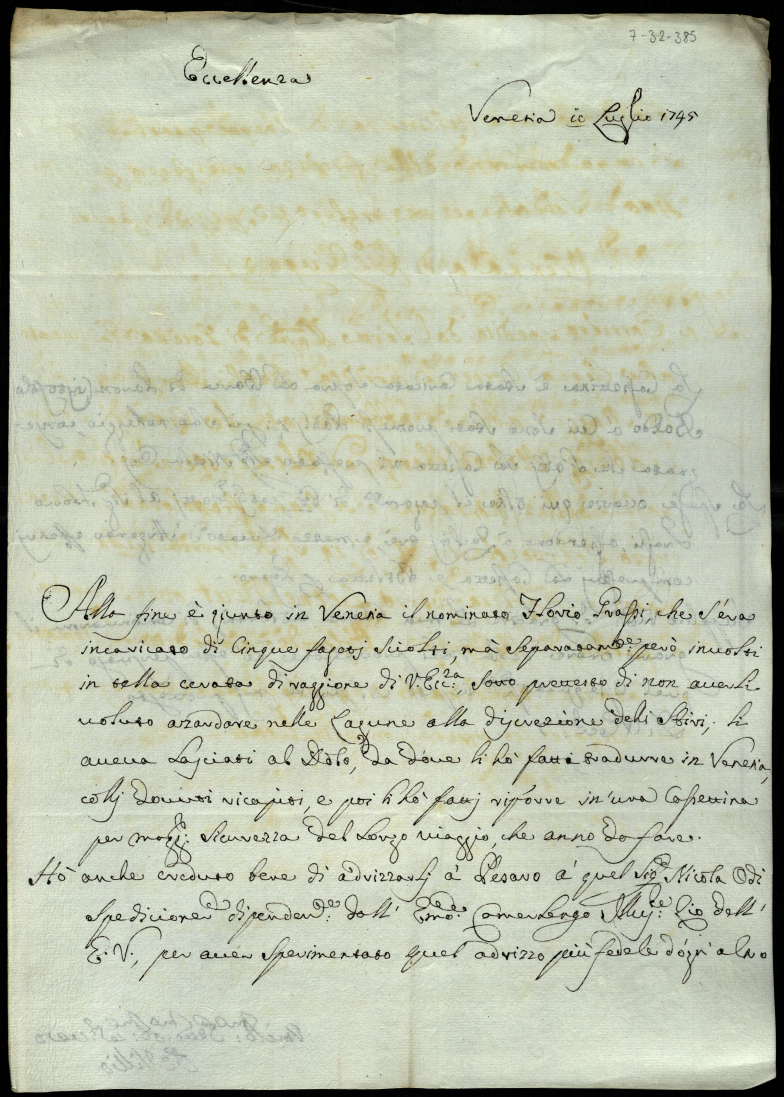 7-32-385
Eccellenza
Venezia 10 Luglio 1745
Alla fine è giunto in Venezia il nominato Flovio Grassi, che s'era
incaricato di Cinque fagotj sciolti, mà separatam:te però involti
in tella cerata di raggione di V: Ecc:za, sotto pretesto di non averli
voluto azardare nelle Lagune alla discrezione deli Stivi; li
aveva lasciati al Dolo, da dove li hò fatti tradurre in Venezia,
colli dovuti ricapiti, e poi li hò fattj riporre in una Cassettina
per magg: sicurezza del longo viaggio, che anno da fare.
Hò anche creduto bene di adrizzarli à Pesaro à quel Sig: Nicola Odi
Spedicioner dipenden:te dall' Emo: Camerlengo Zio dell'
E. V., per aver sperimentato quel adrizzo più fedele d'ogn' altro